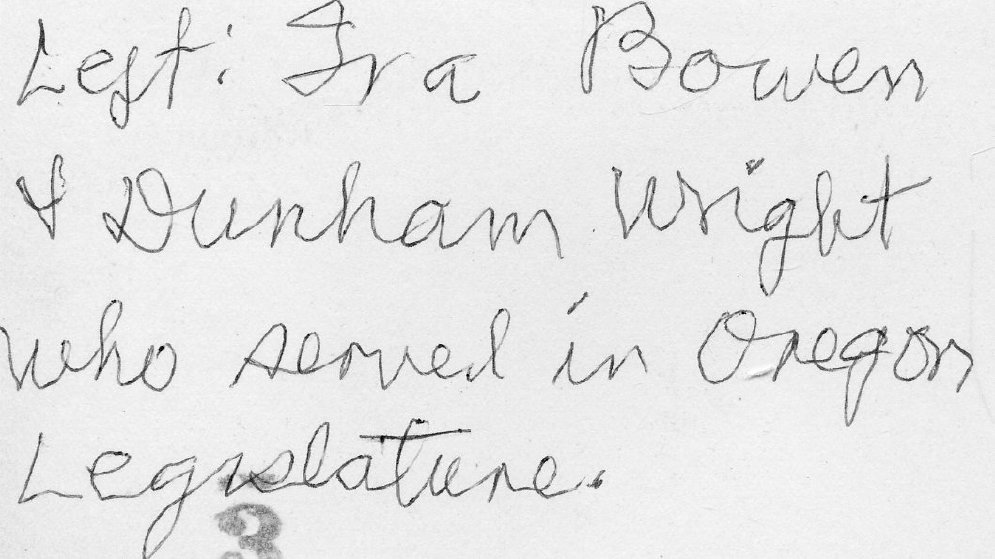 Left: Ira Bowen
& Dunham Wright
who served in Oregon
Legislature.
3